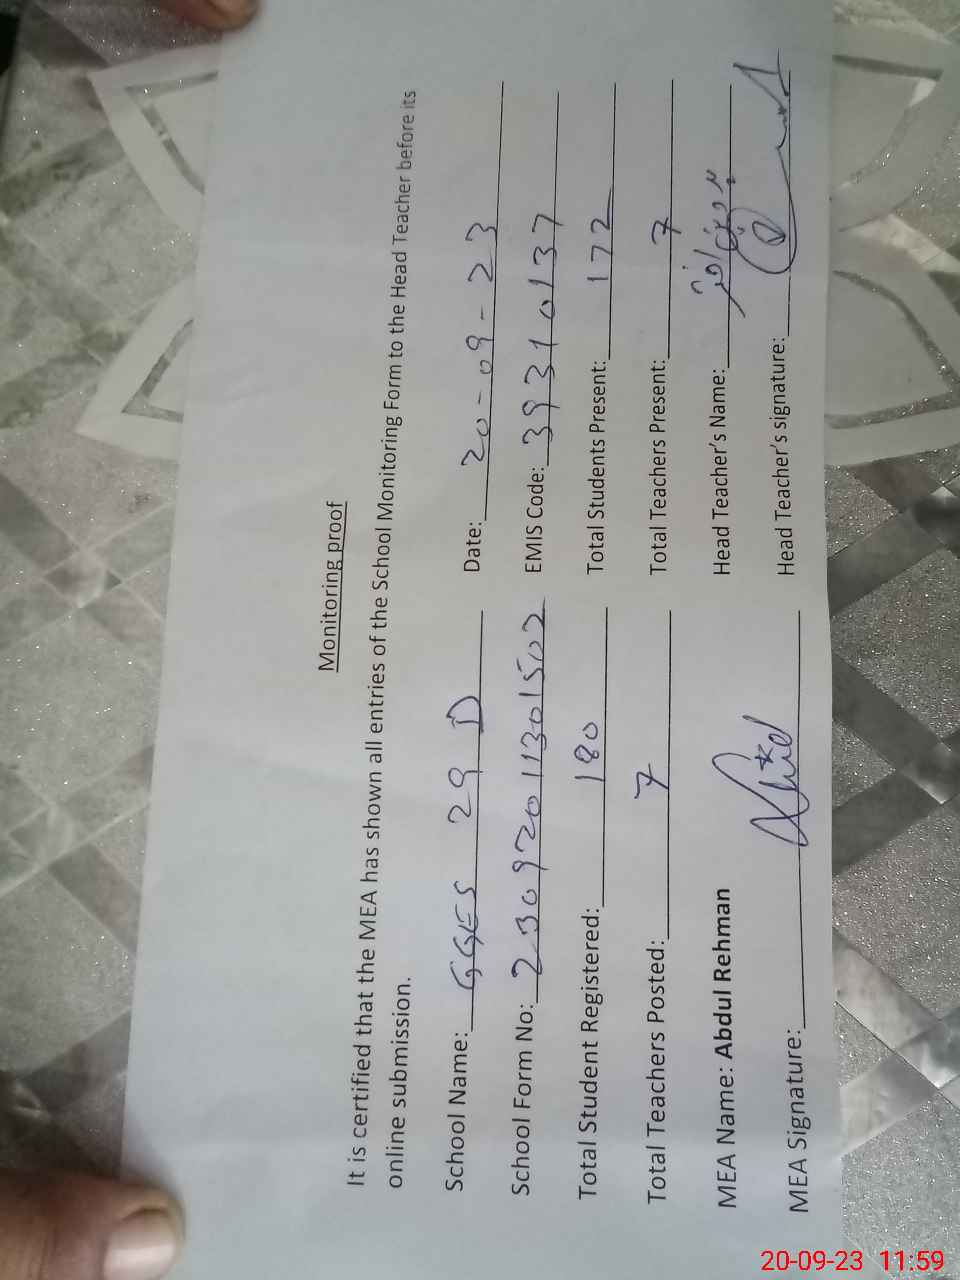 Monitoring proof
It is certified that the MEA has shown all entries of the School Monitoring Form to the Head Teacher before its
online submission.
School Name: GGES 29 D Date: 20-09-23
School Form No: 23092011301502 EMIS Code: 39310137
Total Student Registered: 180 Total Students Present: 172
Total Teachers Posted: 7 Total Teachers Present: 7
MEA Name: Abdul Rehman Head Teacher's Name:
MEA Signature: Head Teacher's signature:
20-09-23 11:59